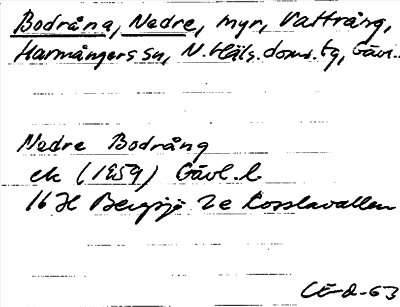 Bodråna, Nedre, myr, Vattrång,
Harmångers sn, N. Häls. doms. tg, Gävl.
Nedre Bodrång
ek (1959) Gävl. l
16 H Bergsjö 2e Kosslavallen
CE-D-63